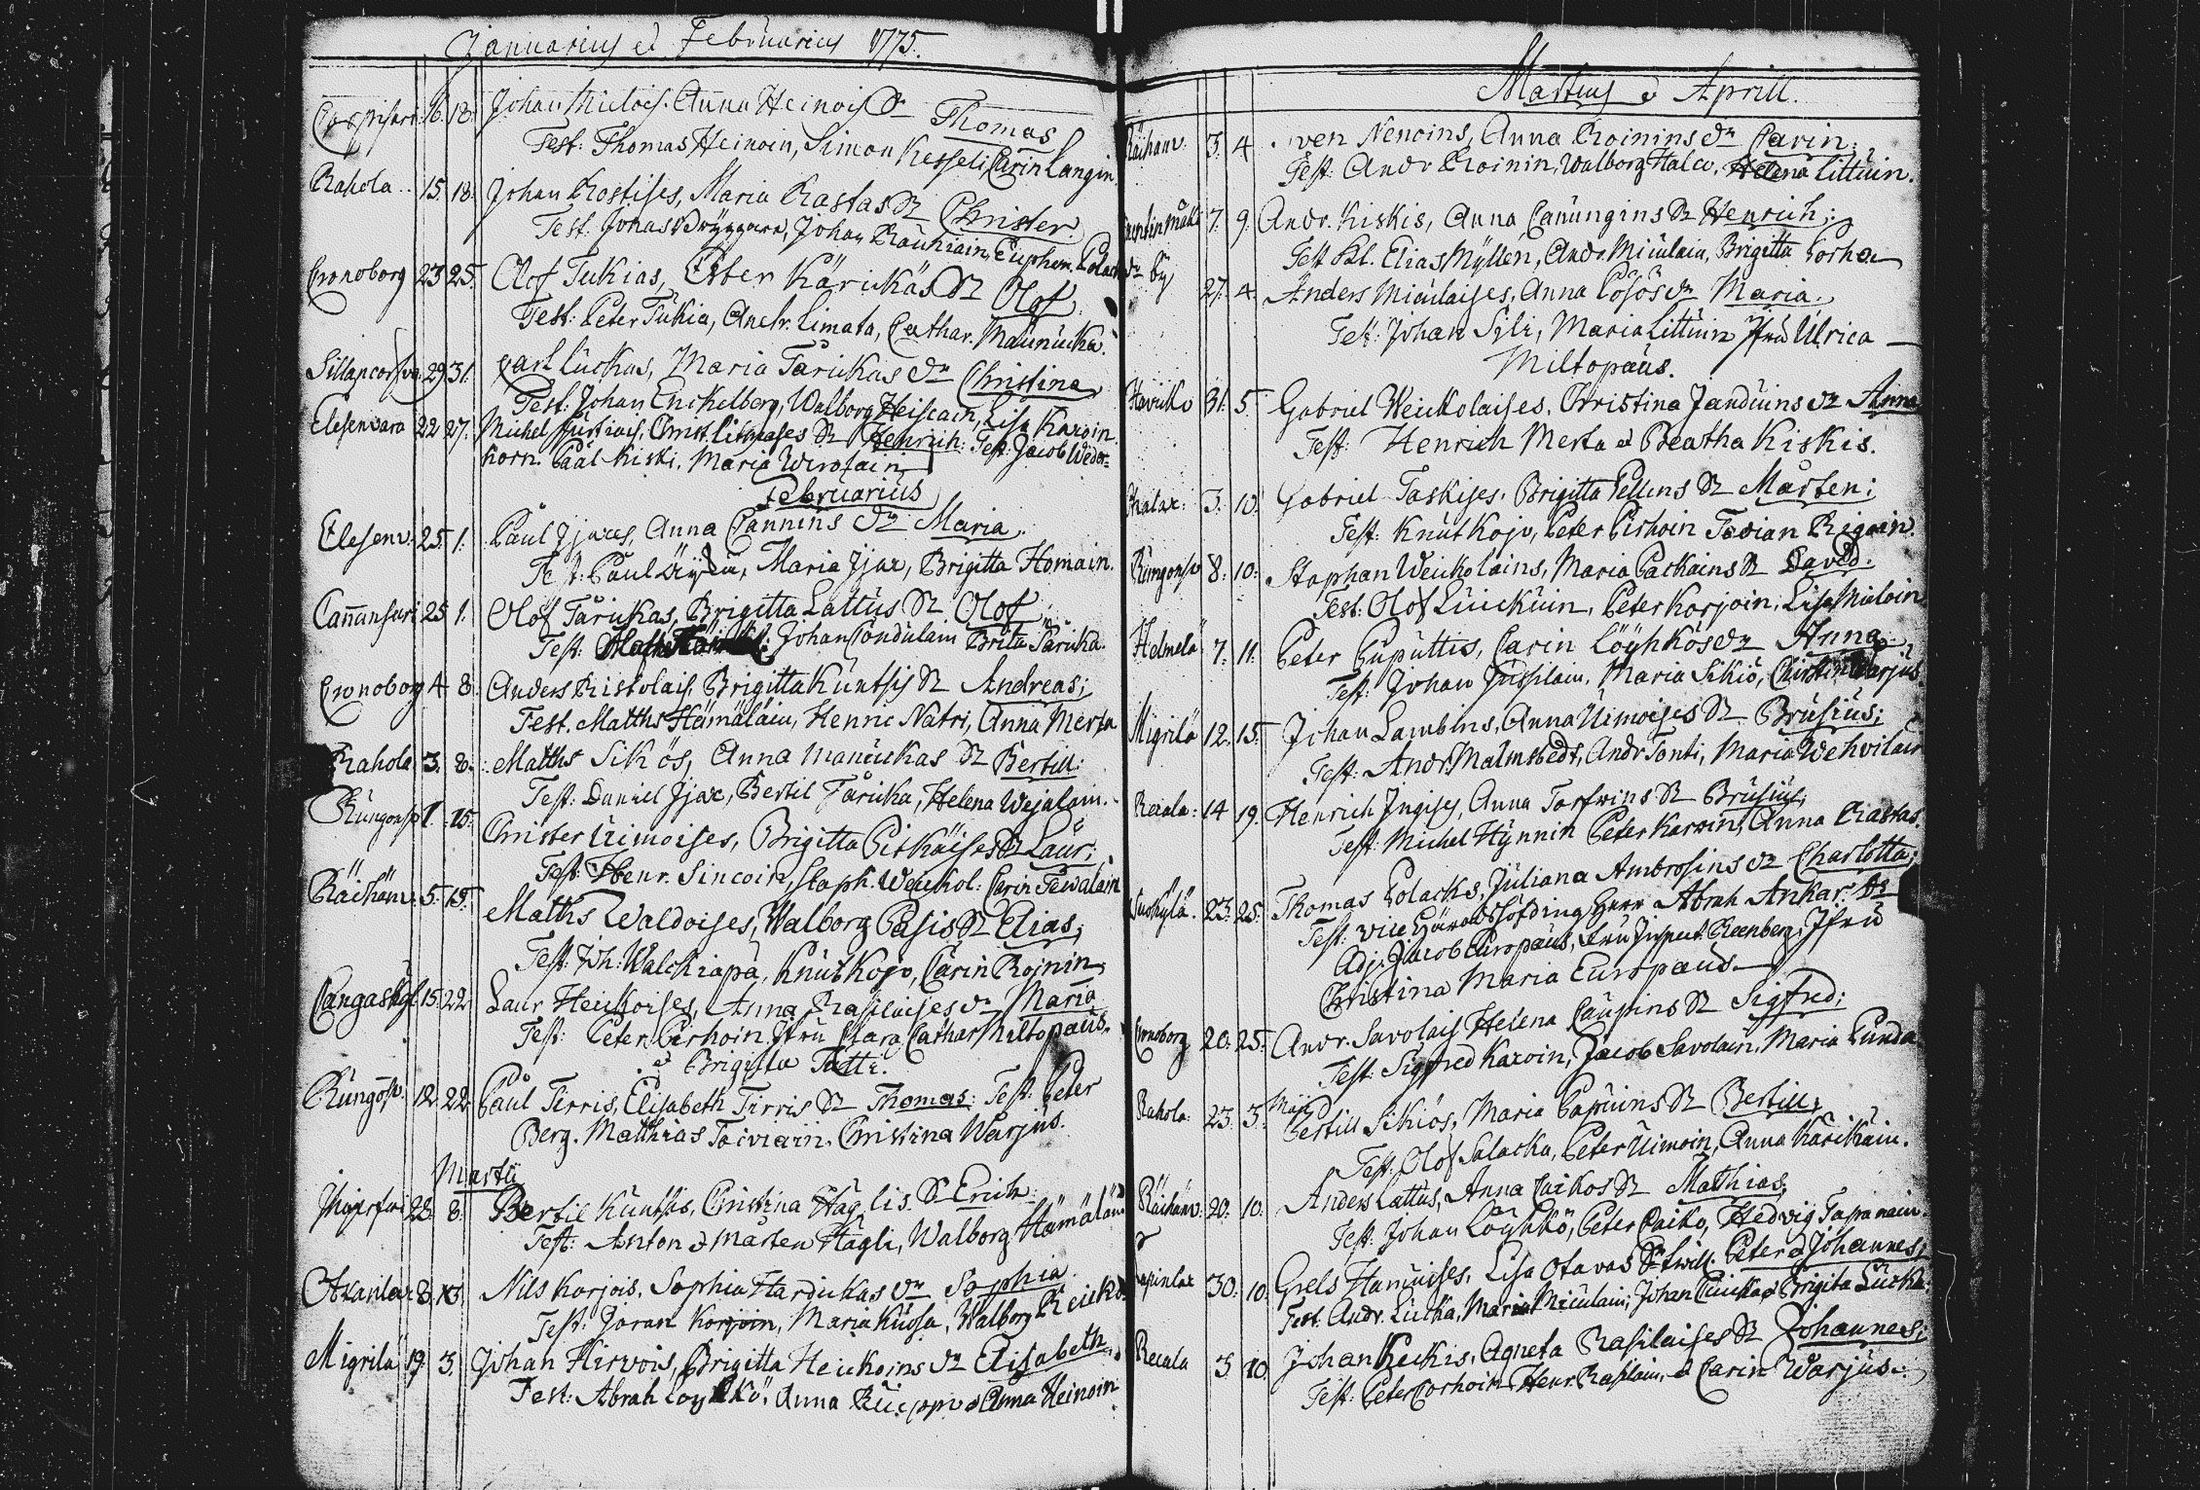 Januarius et Februarius 1775.
16. 18. Johan Anna Heinois Sn Thomas
Test: Thomas Heinoin, Simon Kesseli, Carin Langin.
Rahola.. 15. 18. Johan Rostises, Maria Rastas Sn Christer.
Test. Jonas Johan Rauhiain, Euphem.
Cronoborg 23 25. Olof Tukias, Ester Kärickäs Sn Olof.
Test: Peter Tukia, Andr. Limata, Cathar. Maunucka.
29. 31. Carl Luckas, Maria Tarukas dr Christina
Test: Johan Enckelberg, Walborg Heiscain, Lisa Karoin.
Elesenvara 22 27. Michel Christ. Sn Henrich: Test: Jacob Weder=
korn. Pål Kiski. Maria
Februarius
Elesenv. 25. 1. Paul Ijäxes, Anna Cannins dr Maria.
Test: Paul Maria Ijax, Brigitta Homain.
Canansari 25 1. Olof Tarukas, Brigitta Lattus Sn Olof
Test: Johan Condulain Brita Taruka.
Cronoborg 4 8. Anders Ristolais, Brigitta Kuntsis Sn Andreas;
Test. Matths Hämäläin, Henric Natri, Anna Merta
Rahola 3. 8. Matths Sikiös, Anna Manuckas Sn Bertill:
Test: Daniel Ijax, Bertil Taruka, Helena Wejalain.
1. 15. Christer Uimoises, Brigitta Pitkäises Sn Laur;
Test: Henr. Sincoin, Staph. Weickol: Carin Tewalain
Räihäv. 5. 15. Matths Waldoises, Walborg Pasis Sn Elias;
Test: Joh: Walckiapä, Knut Kojo, Carin Roinin
Cangaskyl 15. 22. Laur. Heickoises, Anna Rasilaises dr Maria
Test: Peter Pirhoin Jfru Clara Cathar Miltopäus.
et Brigitta Tatti.
12. 22. Påul Tirris, Elisabeth Tirris Sn Thomas: Test: Peter
Berg. Matthias Toiviain. Christina Warjus.
Martii
23. 8. Bertil Kuntsis, Christina Häglis. Sn Erich
Test: Anton et Mårten Hägli, Walborg Hämäläin
8. 13. Nils Korjois, Sophia Hardickas dr Sophia
Test: Joran Korjoin, Maria Kuosa, Walborg
Migrilä 19 3. Johan Hirvois, Brigitta Heickoins dr Elisabeth.
Test: Abrah Löyhkö, Anna et Anna Heinoin
Martius et Aprill.
Räihäv. 3. 4. Nenoins, Anna Roinins dr Carin;
Test: Andr Roinin, Walborg Halco, Helena Littuin.
7. 9. Andr. Kiskis, Anna Canungins Sn Henrich;
Test Elias Myllen, Andr. Miculain, Brigitta Porha
by 27. 4. Anders Miculaises, Anna Pösös dr Maria.
Test: Johan Syli, Maria Littuin Jfru Ulrica
Miltopäus.
31. 5. Gabriel Weickolaises. Christina Janduins dr Anna
Test: Henrich Merta et Beatha Kiskis.
3. 10. Gabriel Taskises. Brigitta Pellins Sn Mårten;
Test: Knut Kojo, Peter Pirhoin Tavian Rigoin.
8. 10. Staphan Weickolains, Maria Packains Sn David.
Test: Olof Luickuin, Peter Korjoin, Lisa
Helmelä 7. 11. Peter Puputtis, Carin Löyhkös dr Anna
Test: Johan Jussilain, Maria Sikiö, Christin Warjus.
Migrilä 12. 15. Johan Lambins, Anna Uimoises Sn Brusius;
Test: Andr Malmstedt, Andr Tonti, Maria Wehvilain
14 19. Henrich Ingises, Anna Torfwins Sn Brusius;
Test: Michel Hynnin Peter Karvin, Anna Rastas.
23. 25. Thomas Polacks, Juliana Ambrosins dr Charlotta;
Test: Vice Häradshöfding Herr Abrah Ankar.
Adj. Jacob Europäus, Fru Inspect. Reenberg, Jfru
Christina Maria Europaeus
Cronoborg 20. 25. Andr. Savolais, Helena Caupins Sn Sigfred;
Test: Sigfred Karoin, Jacob Savolain, Maria Punda
Rahola. 23. 3. Maji Bertill Sikiös, Maria Papuins Sn Bertill;
Test: Olof Salacka, Peter Uimoin, Anna Kärikäin.
Räihäv. 20. 10. Anders Lattus, Anna Caikos Sn Mathias;
Test: Johan Löyhkö, Peter Caiko, Hedvig Tapanain.
30. 10. Grels Hamuises, Lisa Otavas Sn twill: Peter et Johannes;
Test: Andr. Lucka, Maria Miculain, Johan Brigita Lucka.
5 10. Johan Keckis, Agneta Rasilaises Sn Johannes;
Test: Peter Porhoin Henr. Rasilain, et Carin Warjus.